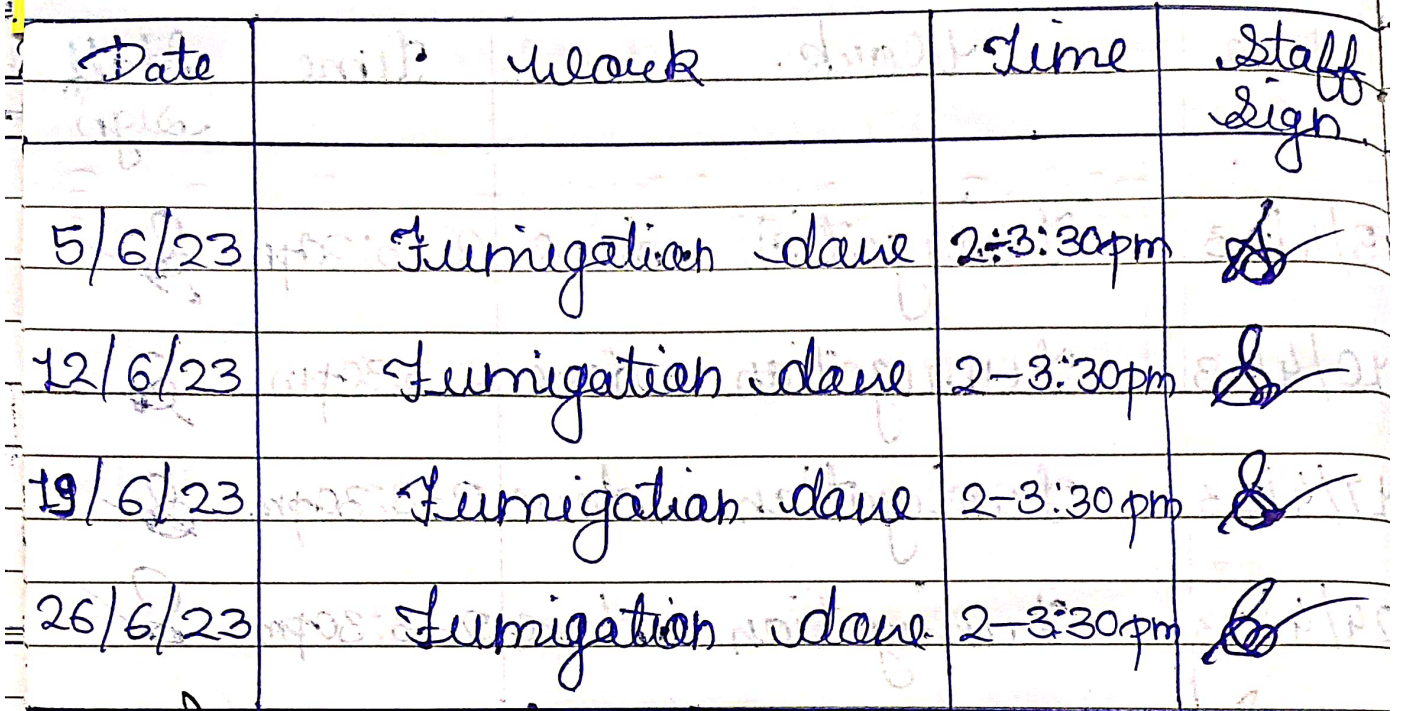 Date Work Time Staff
Sign
5/6/23 Fumigation done 2-3:30pm
12/6/23 Fumigation done 2-3:30pm
19/6/23 Fumigation done 2-3:30pm
26/6/23 Fumigation done. 2-3:30pm